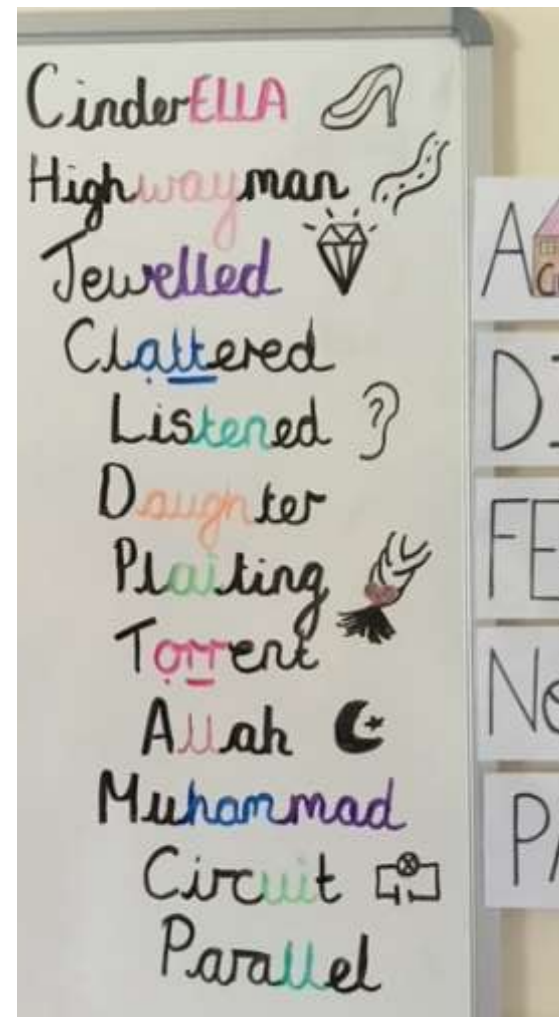 CinderELLA
Highwayman
Jewelled
Clattered
Listened
Daughter
Plaiting
Torrent
Allah
Muhammad
Circuit
Parallel
A
DI
FE
Ne
PA